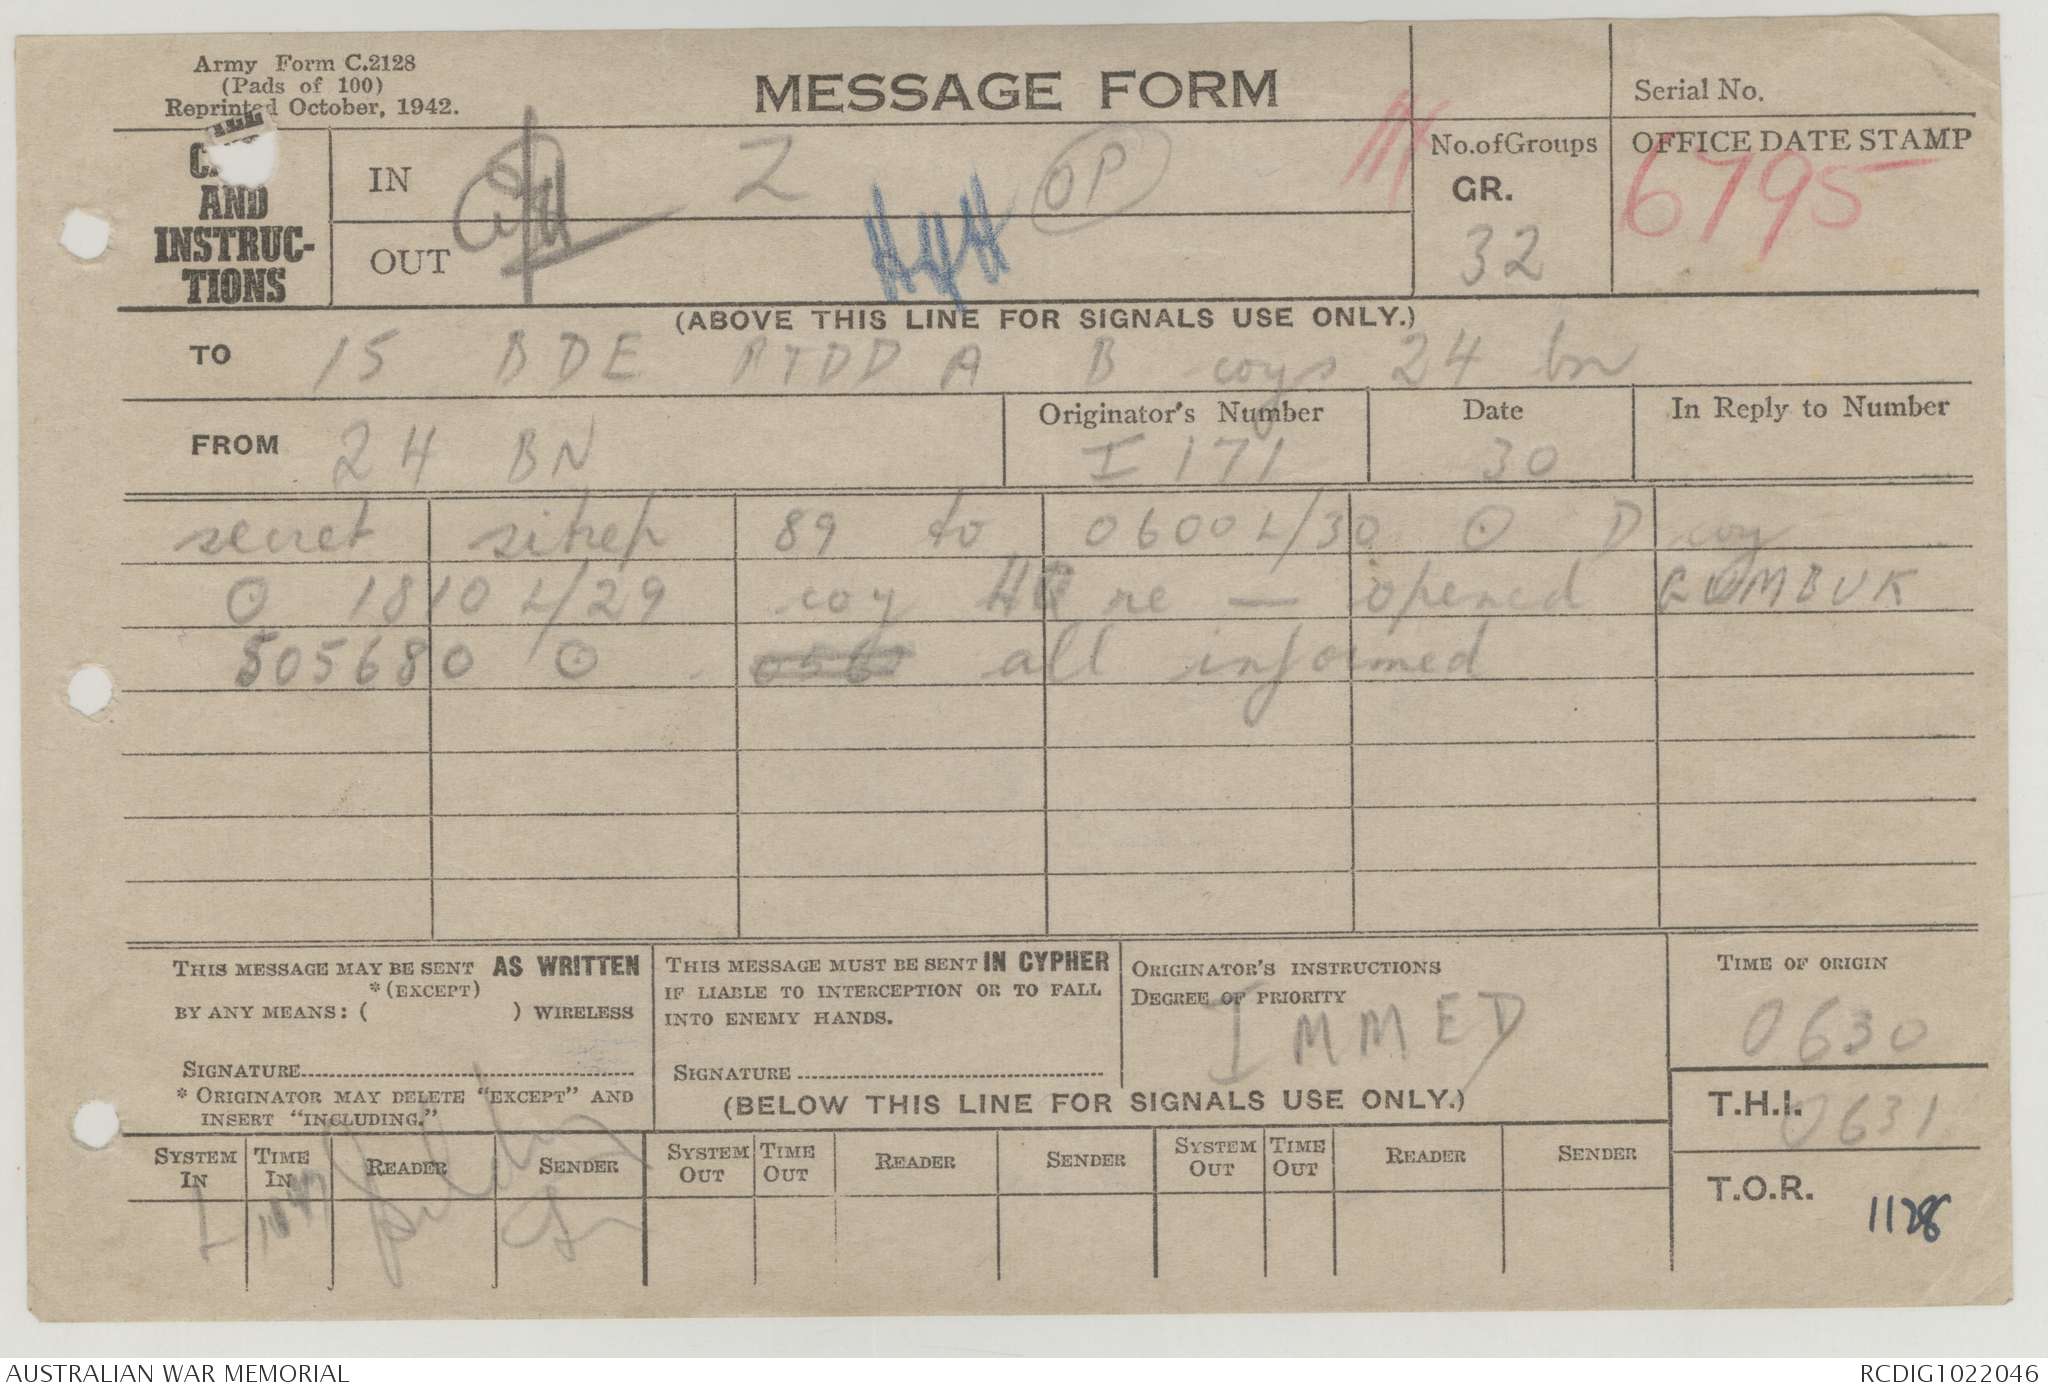 Army Form C.2128
(Pads of 100)
Reprinted October, 1942.
MESSAGE FORM
Serial No.
AND
INSTRUC-
TIONS
IN
Z
OP
OUT
No. of Groups
GR.
32
OFFICE DATE STAMP
6795
(ABOVE THIS LINE FOR SIGNALS USE ONLY.)
TO 15 BDE RTDD A B coys 24 bn
FROM 24 BN
Originator's Number
I 171
Date
30
In Reply to Number
secret sitrep 89 to 0600L/30 ⊙ D coy
⊙ 1810L/29 coy HQ ne — opened
505680 ⊙ all informed
THIS MESSAGE MAY BE SENT AS WRITTEN
*(EXCEPT)
BY ANY MEANS: ( ) WIRELESS
SIGNATURE
* ORIGINATOR MAY DELETE "EXCEPT" AND
INSERT "INCLUDING."
THIS MESSAGE MUST BE SENT IN CYPHER
IF LIABLE TO INTERCEPTION OR TO FALL
INTO ENEMY HANDS.
SIGNATURE
ORIGINATOR'S INSTRUCTIONS
DEGREE OF PRIORITY
IMMED
TIME OF ORIGIN
0630
(BELOW THIS LINE FOR SIGNALS USE ONLY.)
T.H.I.
0631
SYSTEM IN TIME IN READER SENDER SYSTEM OUT TIME OUT READER SENDER SYSTEM OUT TIME OUT READER SENDER
T.O.R.
1128
AUSTRALIAN WAR MEMORIAL
RCDIG1022046